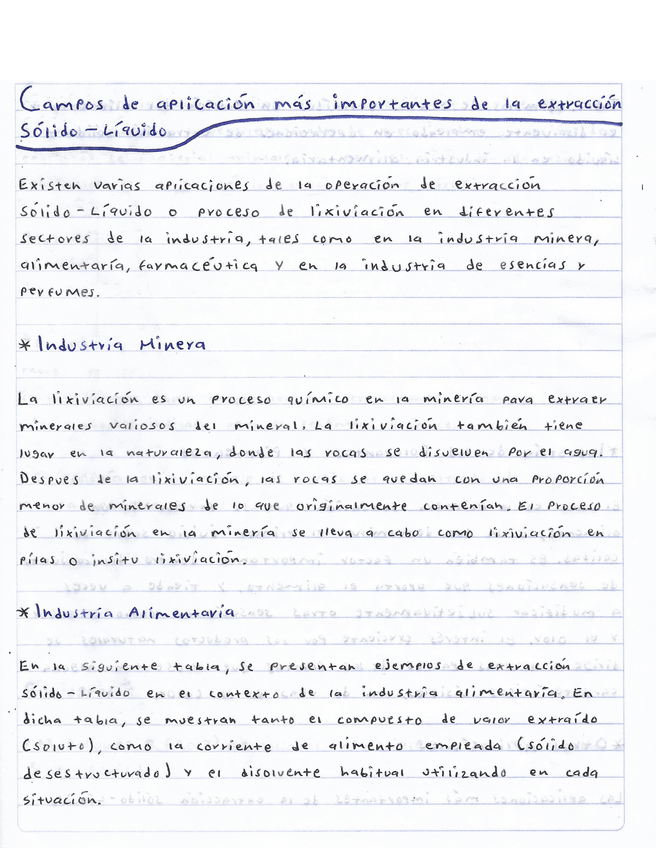 Campos de aplicación más importantes de la extracción
Sólido - Líquido
Existen varias aplicaciones de la operación de extracción
Sólido - Líquido o proceso de lixiviación en diferentes
sectores de la industria, tales como en la industria minera,
alimentaría, farmacéutica y en la industria de esencías y
perfumes.
* Industría Minera
La lixiviación es un proceso químico en la minería para extraer
minerales valiosos del mineral. La lixiviación también tiene
lugar en la naturaleza, donde las rocas se disuelven por el agua.
Despues de la lixiviación, las rocas se quedan con una proporción
menor de minerales de lo que originalmente contenían. El proceso
de lixiviación en la minería se lleva a cabo como lixiviación en
pilas o insitu lixiviación.
* Industría Alimentaría
En la siguiente tabla, se presentan ejemplos de extracción
sólido - Líquido en el contexto de la industria alimentaría. En
dicha tabla, se muestran tanto el compuesto de valor extraído
(soluto), como la corriente de alimento empleada (sólido
desestructurado) y el disolvente habitual utilizando en cada
situación.